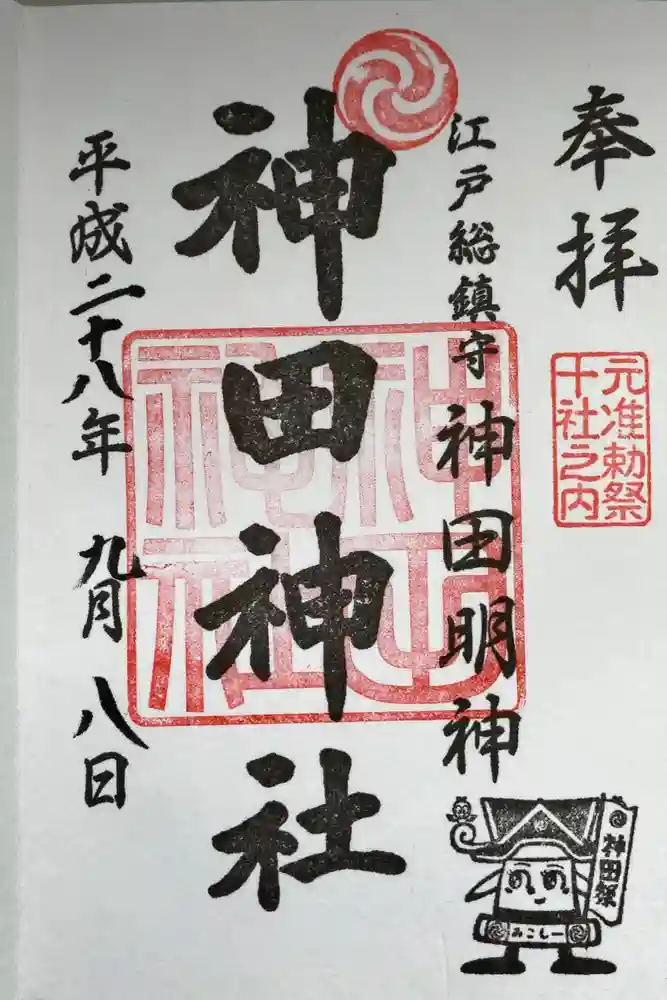 奉拝
元准勅祭
十社之内
江戸総鎮守 神田明神
神田神社
神田神社
平成二十八年 九月 八日
神田祭
みこしー